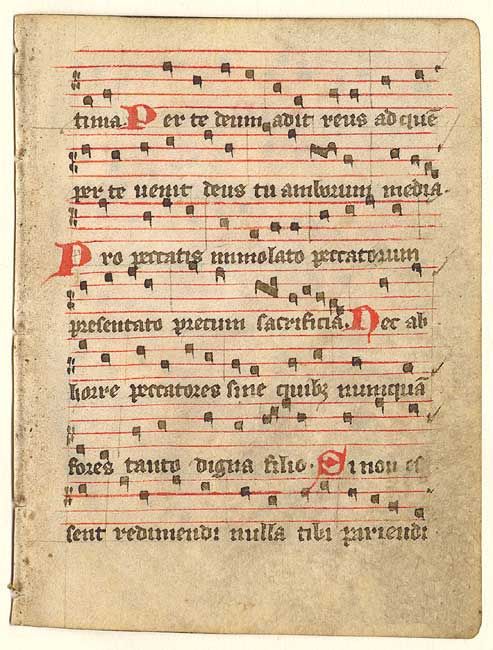 tima. Per te deum adit reus ad quē
per te uenit deus tu amborum media.
Pro peccatis immolato peccatorum
presentato precum sacrificia. Nec ab
horre peccatores sine quibꝫ numquā
fores tanto digna filio. Si non es
sent redimendi nulla tibi pariendi